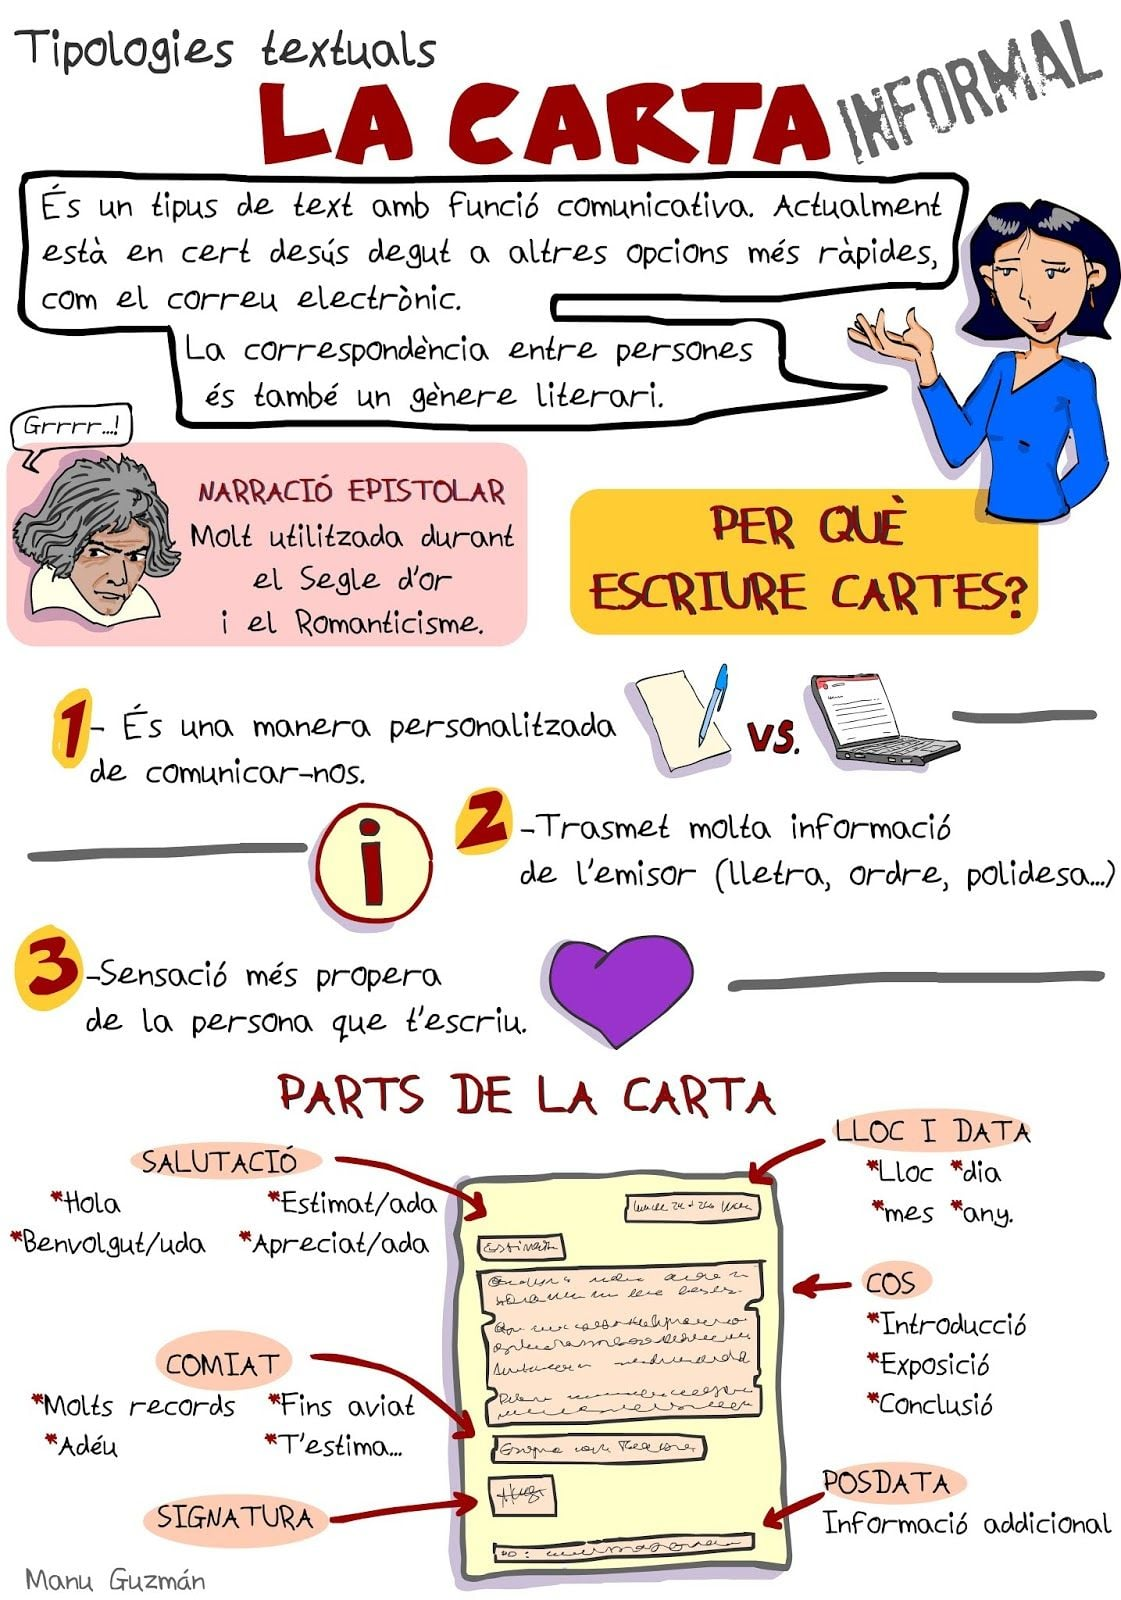 Tipologies textuals
LA CARTA
INFORMAL
És un tipus de text amb funció comunicativa. Actualment
està en cert desús degut a altres opcions més ràpides,
com el correu electrònic.
La correspondència entre persones
és també un gènere literari.
Grrrr...!
NARRACIÓ EPISTOLAR
Molt utilitzada durant
el Segle d'or
i el Romanticisme.
PER QUÈ
ESCRIURE CARTES?
1- És una manera personalitzada
de comunicar-nos.
VS.
i
2-Trasmet molta informació
de l'emisor (lletra, ordre, polidesa...)
3-Sensació més propera
de la persona que t'escriu.
PARTS DE LA CARTA
SALUTACIÓ
*Hola *Estimat/ada
*Benvolgut/uda *Apreciat/ada
LLOC I DATA
*Lloc *dia
*mes *any.
COS
*Introducció
*Exposició
*Conclusió
COMIAT
*Molts records *Fins aviat
*Adéu *T'estima...
SIGNATURA
POSDATA
Informació addicional
Manu Guzmán